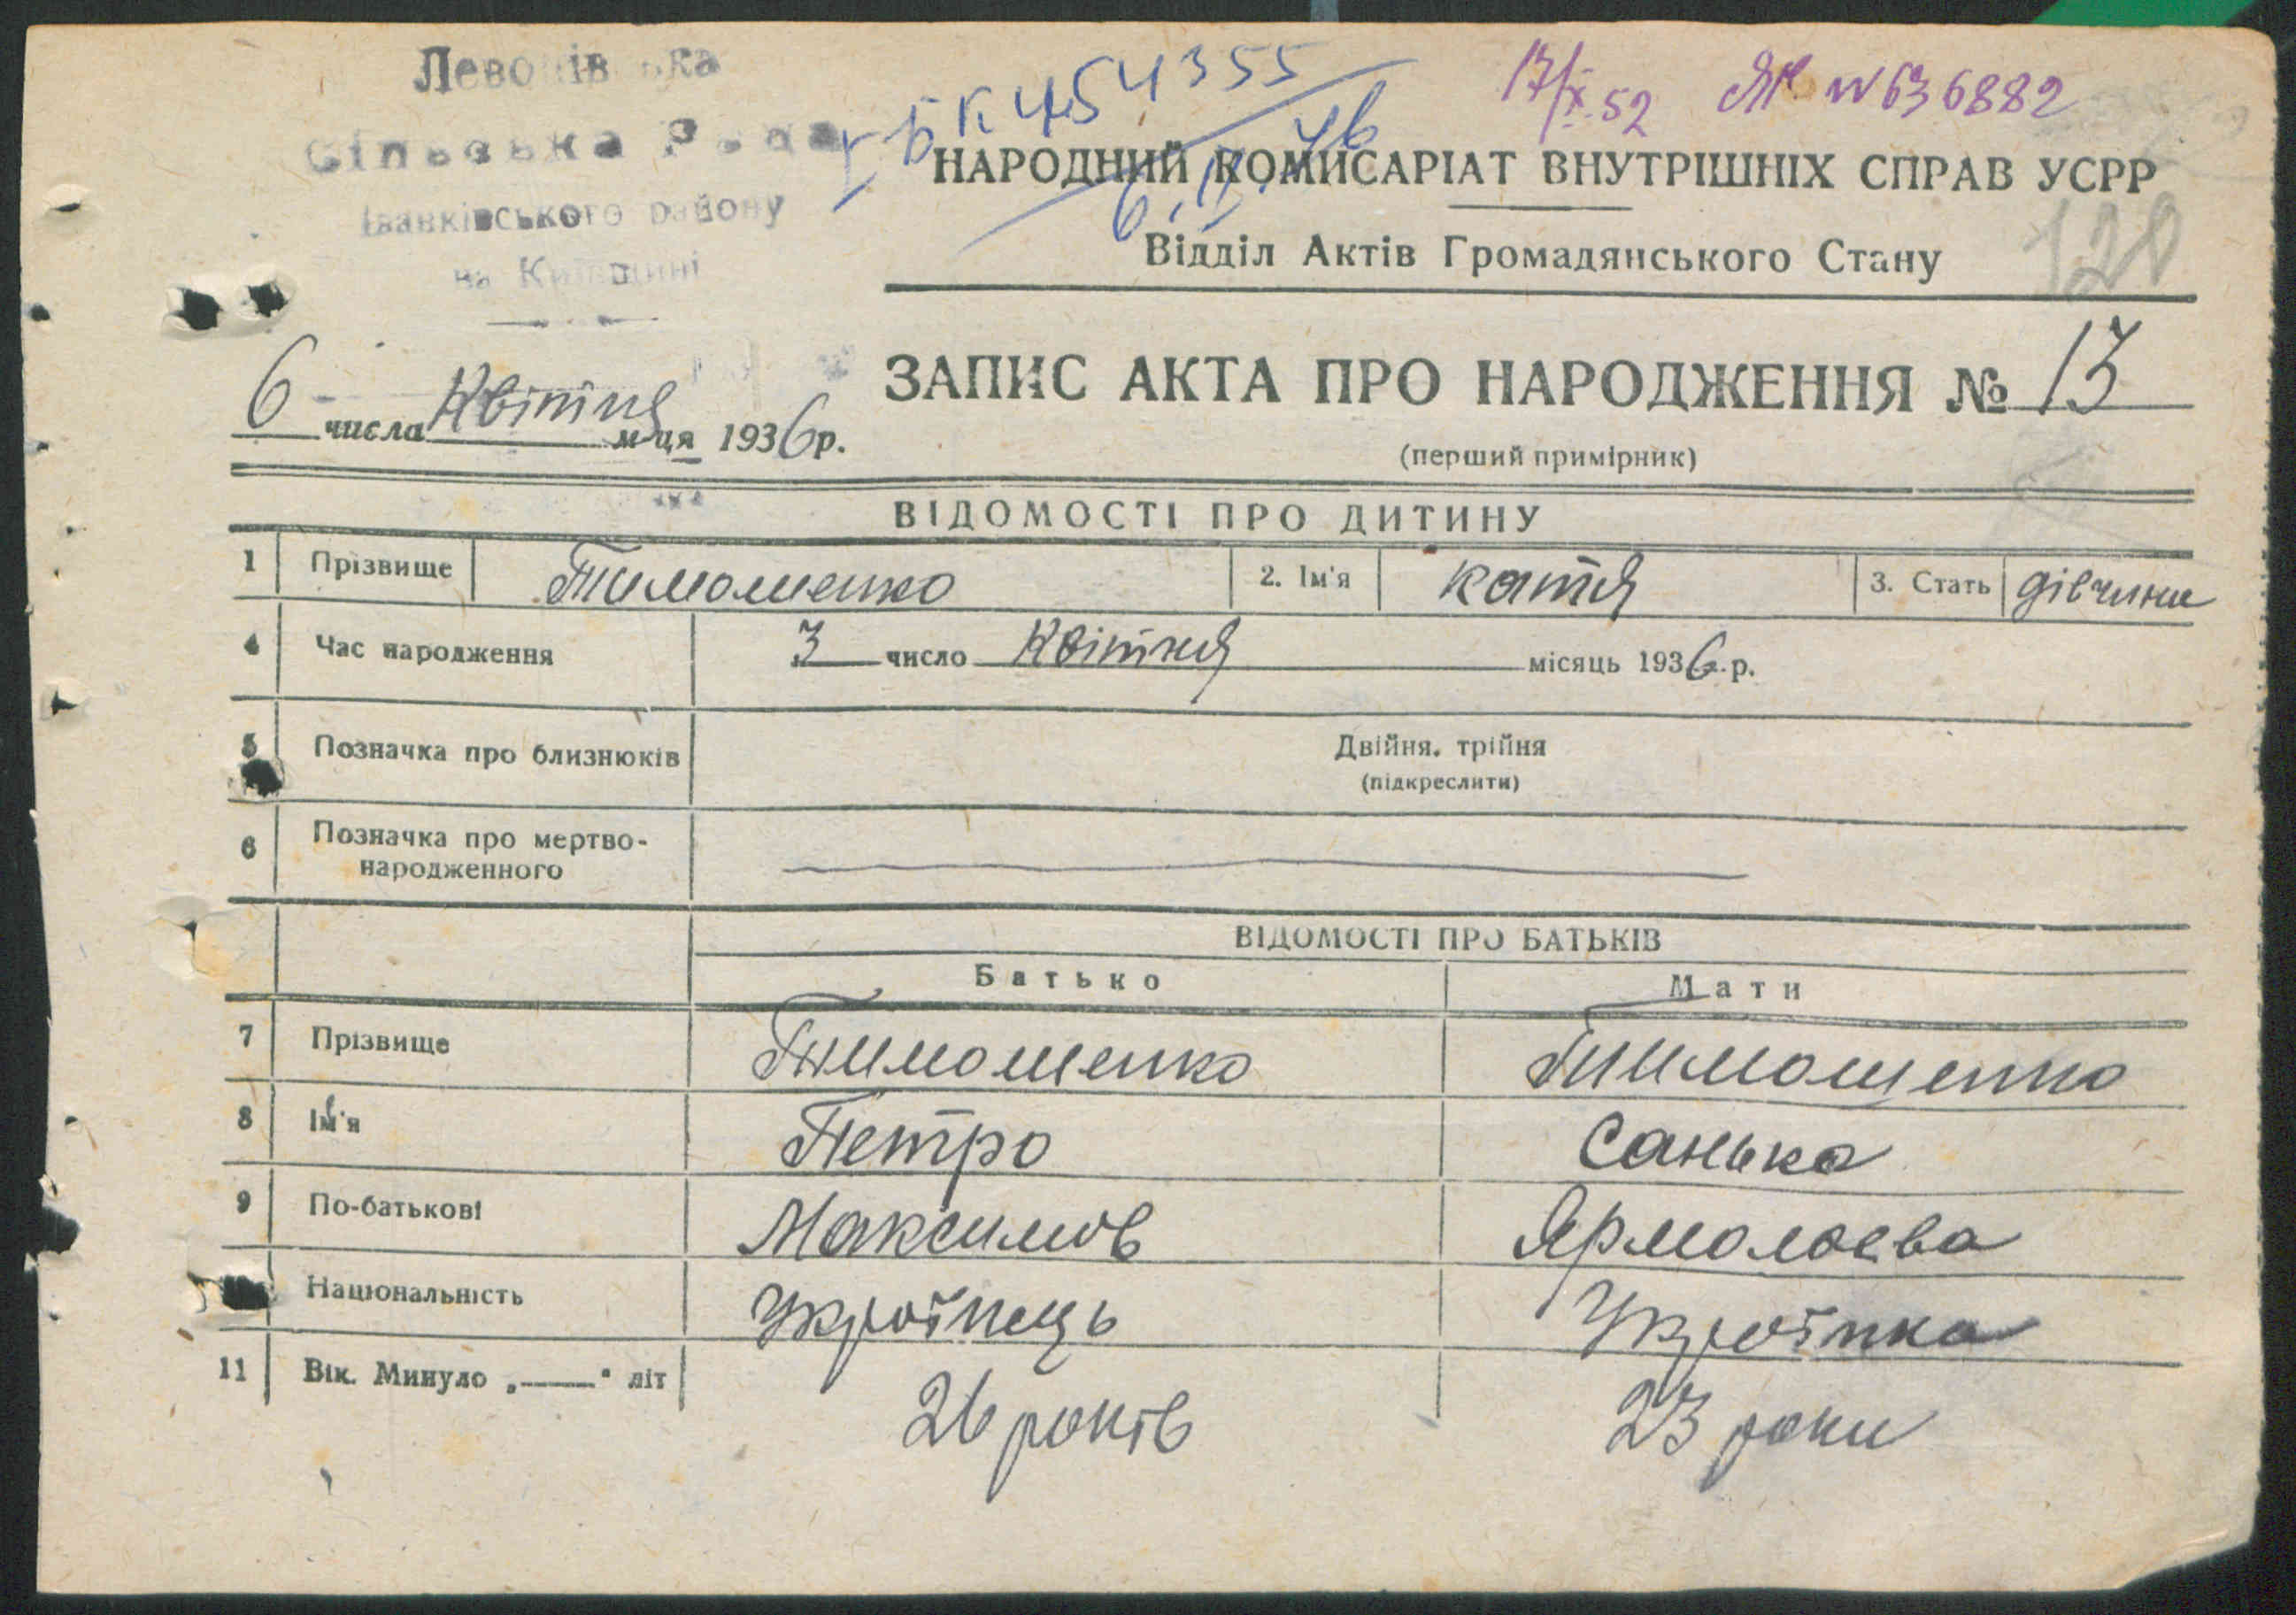 Сільська Рада
Іванківського району
на Київщині
І-БК 454355
6.IX.46
17/X.52 ЯК № 636882
НАРОДНИЙ КОМИСАРІАТ ВНУТРІШНІХ СПРАВ УСРР
128
Відділ Актів Громадянського Стану
ЗАПИС АКТА ПРО НАРОДЖЕННЯ № 13
6 числа Квітня м-ця 1936 р.
(перший примірник)
ВІДОМОСТІ ПРО ДИТИНУ
1 Прізвище Тимошенко 2. Ім'я Катя 3. Стать дівчина
4 Час народження 3 число Квітня місяць 1936 р.
5 Позначка про близнюків Двійня, трійня
(підкреслити)
6 Позначка про мертво-
народженного
ВІДОМОСТІ ПРО БАТЬКІВ
Батько Мати
7 Прізвище Тимошенко Тимошенко
8 Ім'я Петро Санька
9 По-батькові Максимов Ярмолаева
Національність Українець Українка
11 Вік. Минуло „——“ літ 26 років 23 роки